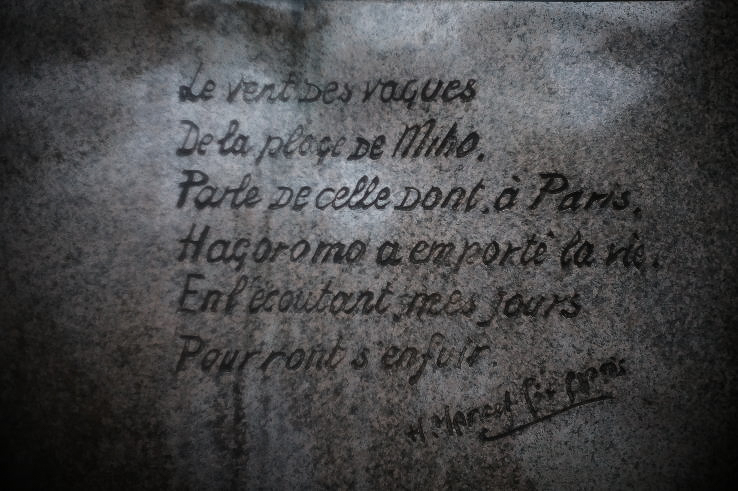 Le vent Des vagues
De la plage De Miho.
Parle De celle Dont, à Paris,
Hagoromo a emporté la vie.
En l'écoutant, mes jours
Pourront s'enfuir.